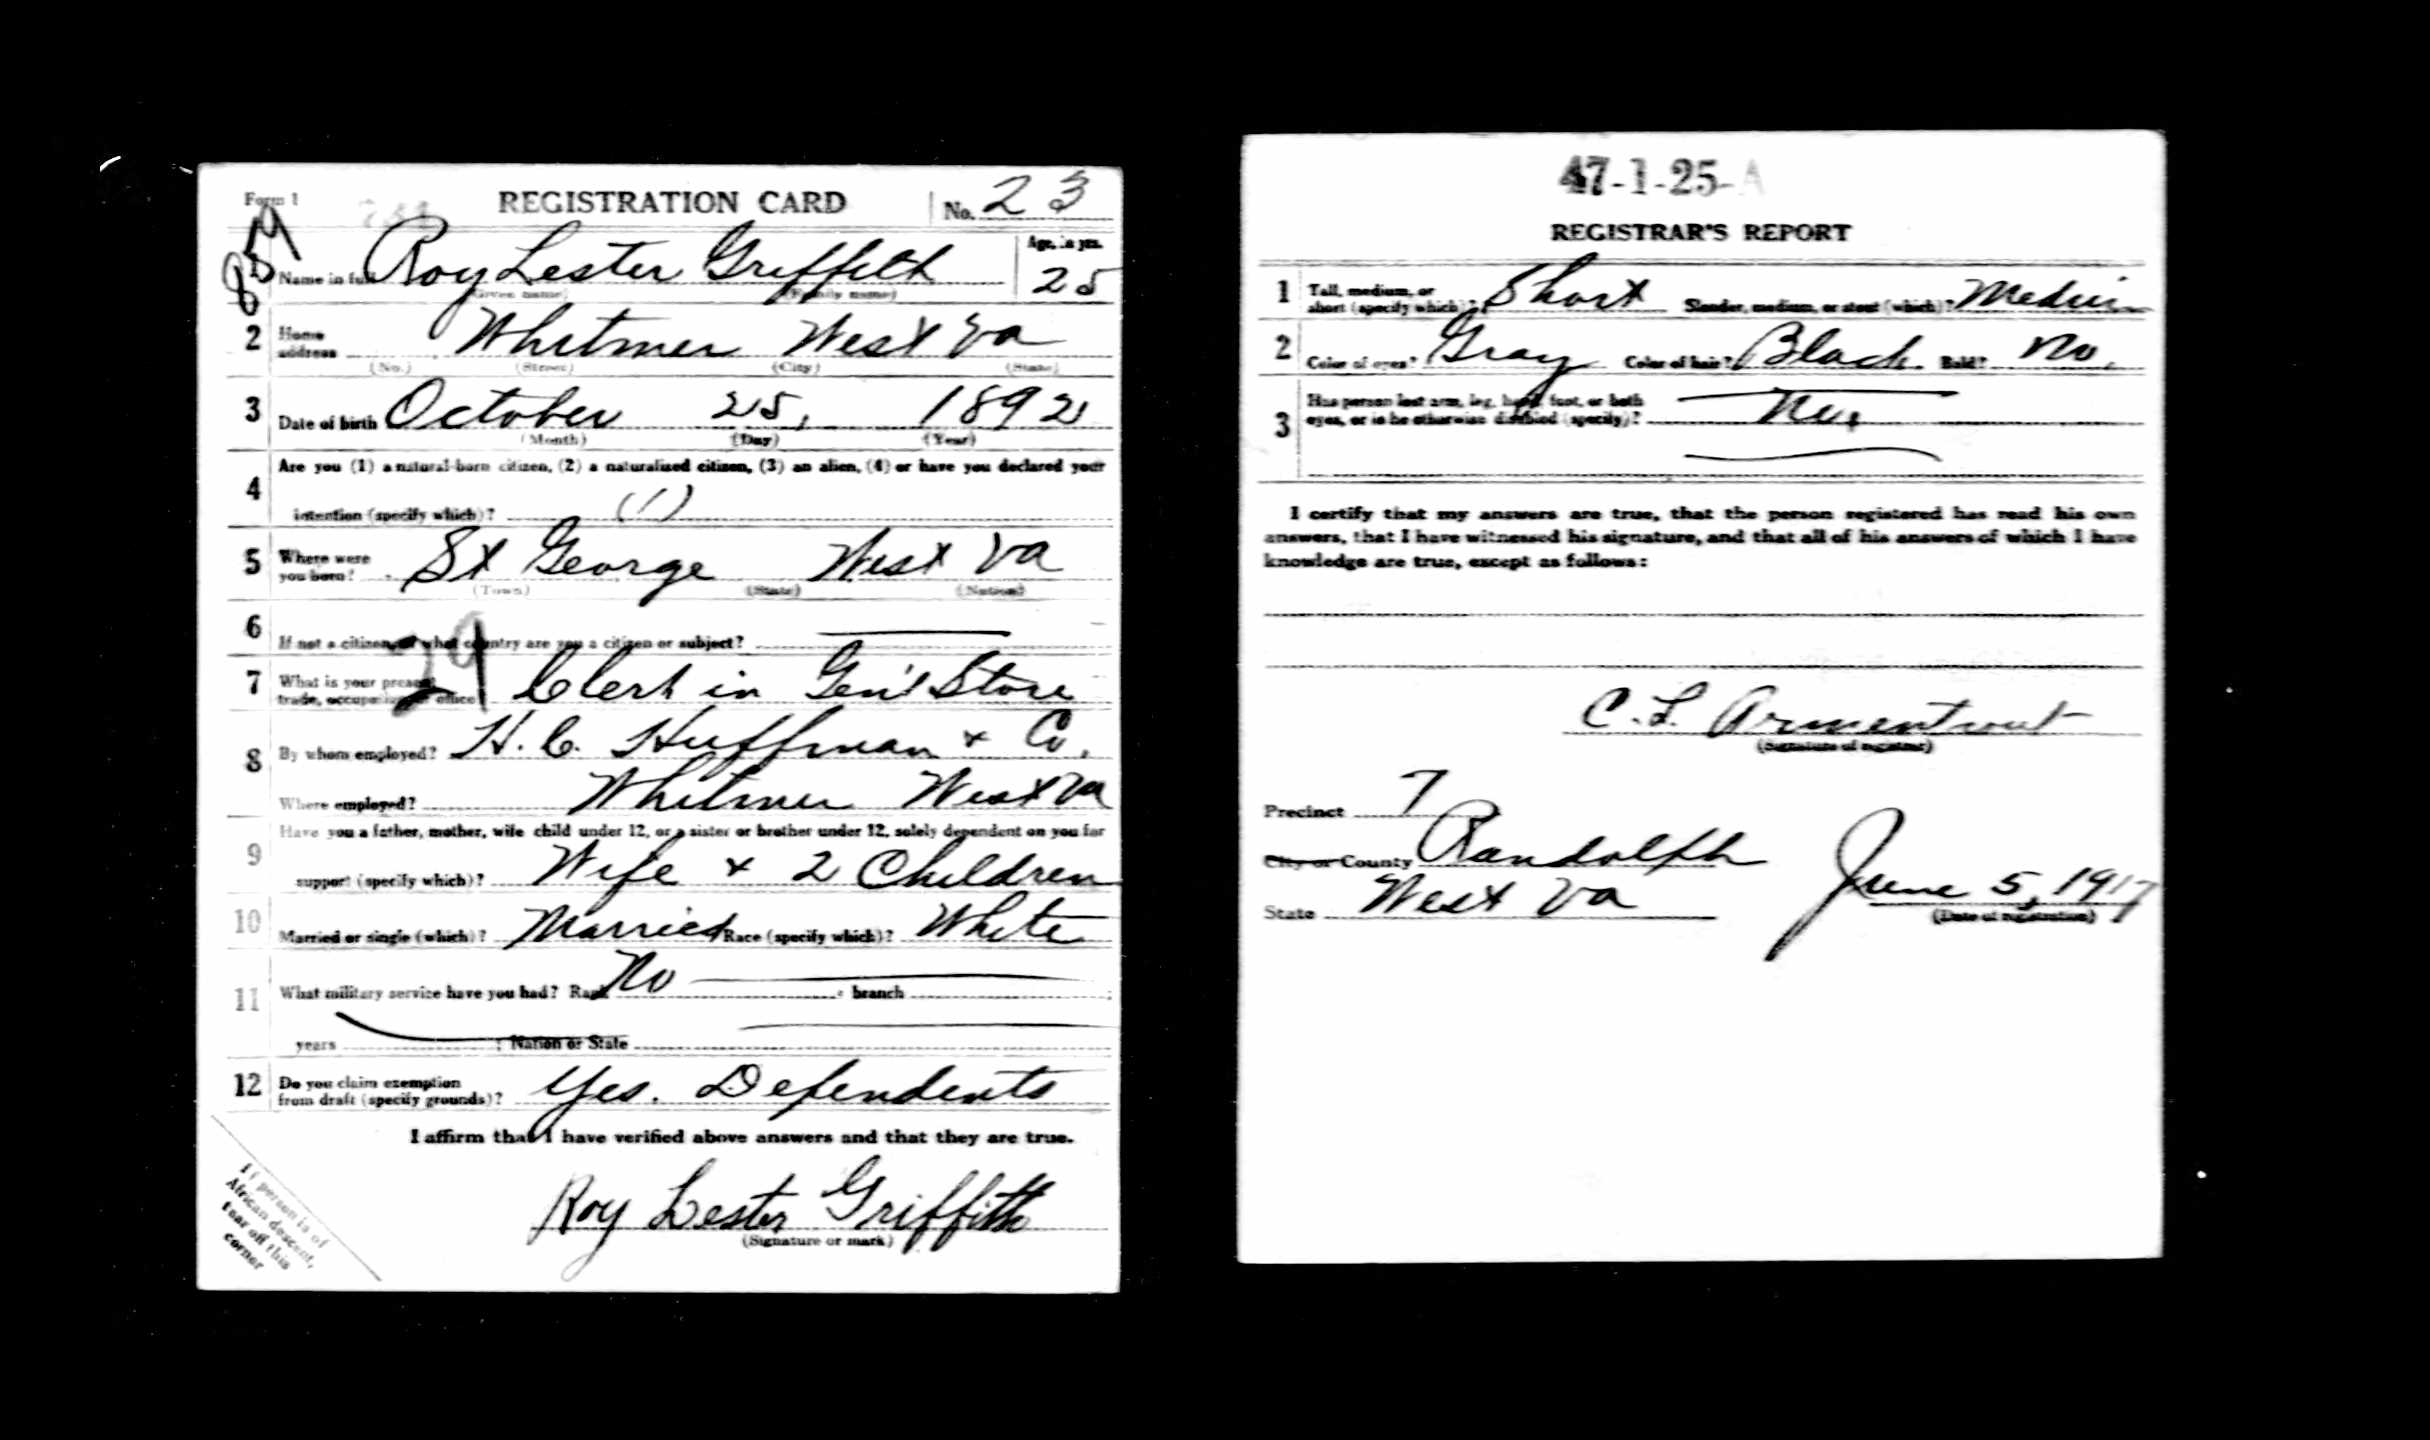 Form 1 REGISTRATION CARD No. 23
859
1 Name in full Roy Lester Griffith Age, in yrs. 25
(Given name) (Family name)
2 Home address Whitmer West Va
(No.) (Street) (City) (State)
3 Date of birth October 25, 1892
(Month) (Day) (Year)
4 Are you (1) a natural-born citizen, (2) a naturalized citizen, (3) an alien, (4) or have you declared your
intention (specify which)? (1)
5 Where were you born? St George West Va
(Town) (State) (Nation)
6 If not a citizen, of what country are you a citizen or subject?
29
7 What is your present trade, occupation, or office? Clerk in Gen'l Store
8 By whom employed? H. C. Huffman & Co,
Where employed? Whitmer West Va
9 Have you a father, mother, wife child under 12, or a sister or brother under 12, solely dependent on you for
support (specify which)? Wife & 2 Children
10 Married or single (which)? Married Race (specify which)? White
11 What military service have you had? Rank No ; branch ;
years ; Nation or State
12 Do you claim exemption from draft (specify grounds)? Yes. Dependents
I affirm that I have verified above answers and that they are true.
Roy Lester Griffith
(Signature or mark)
If person is of
African descent,
tear off this
corner
47-1-25-A
REGISTRAR'S REPORT
1 Tall, medium, or short (specify which)? Short Slender, medium, or stout (which)? Medium
2 Color of eyes? Gray Color of hair? Black. Bald? No.
3 Has person lost arm, leg, hand, foot, or both
eyes, or is he otherwise disabled (specify)? No.
I certify that my answers are true, that the person registered has read his own
answers, that I have witnessed his signature, and that all of his answers of which I have
knowledge are true, except as follows:
C. L. Armentrout
(Signature of registrar)
Precinct 7
City or County Randolph
State West Va June 5, 1917
(Date of registration)